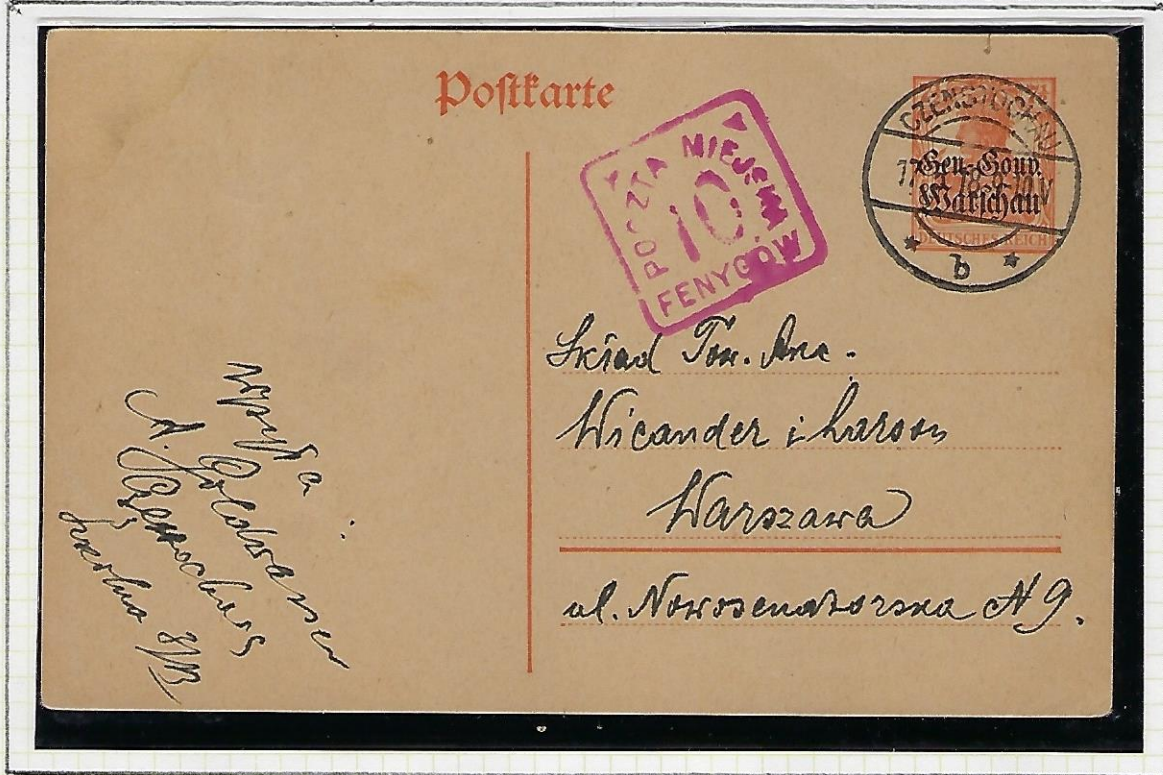 Postkarte
POCZTA MIEJSKA
10
FENYGÓW
CZENSTOCHAU
Gen.-Gouv.
Warschau
DEUTSCHES REICH
b
Skład Tow. Akc.
Wicander i Larson
Warszawa
ul. Nowosenatorska N 9.
wysyła
A. Goldwasser